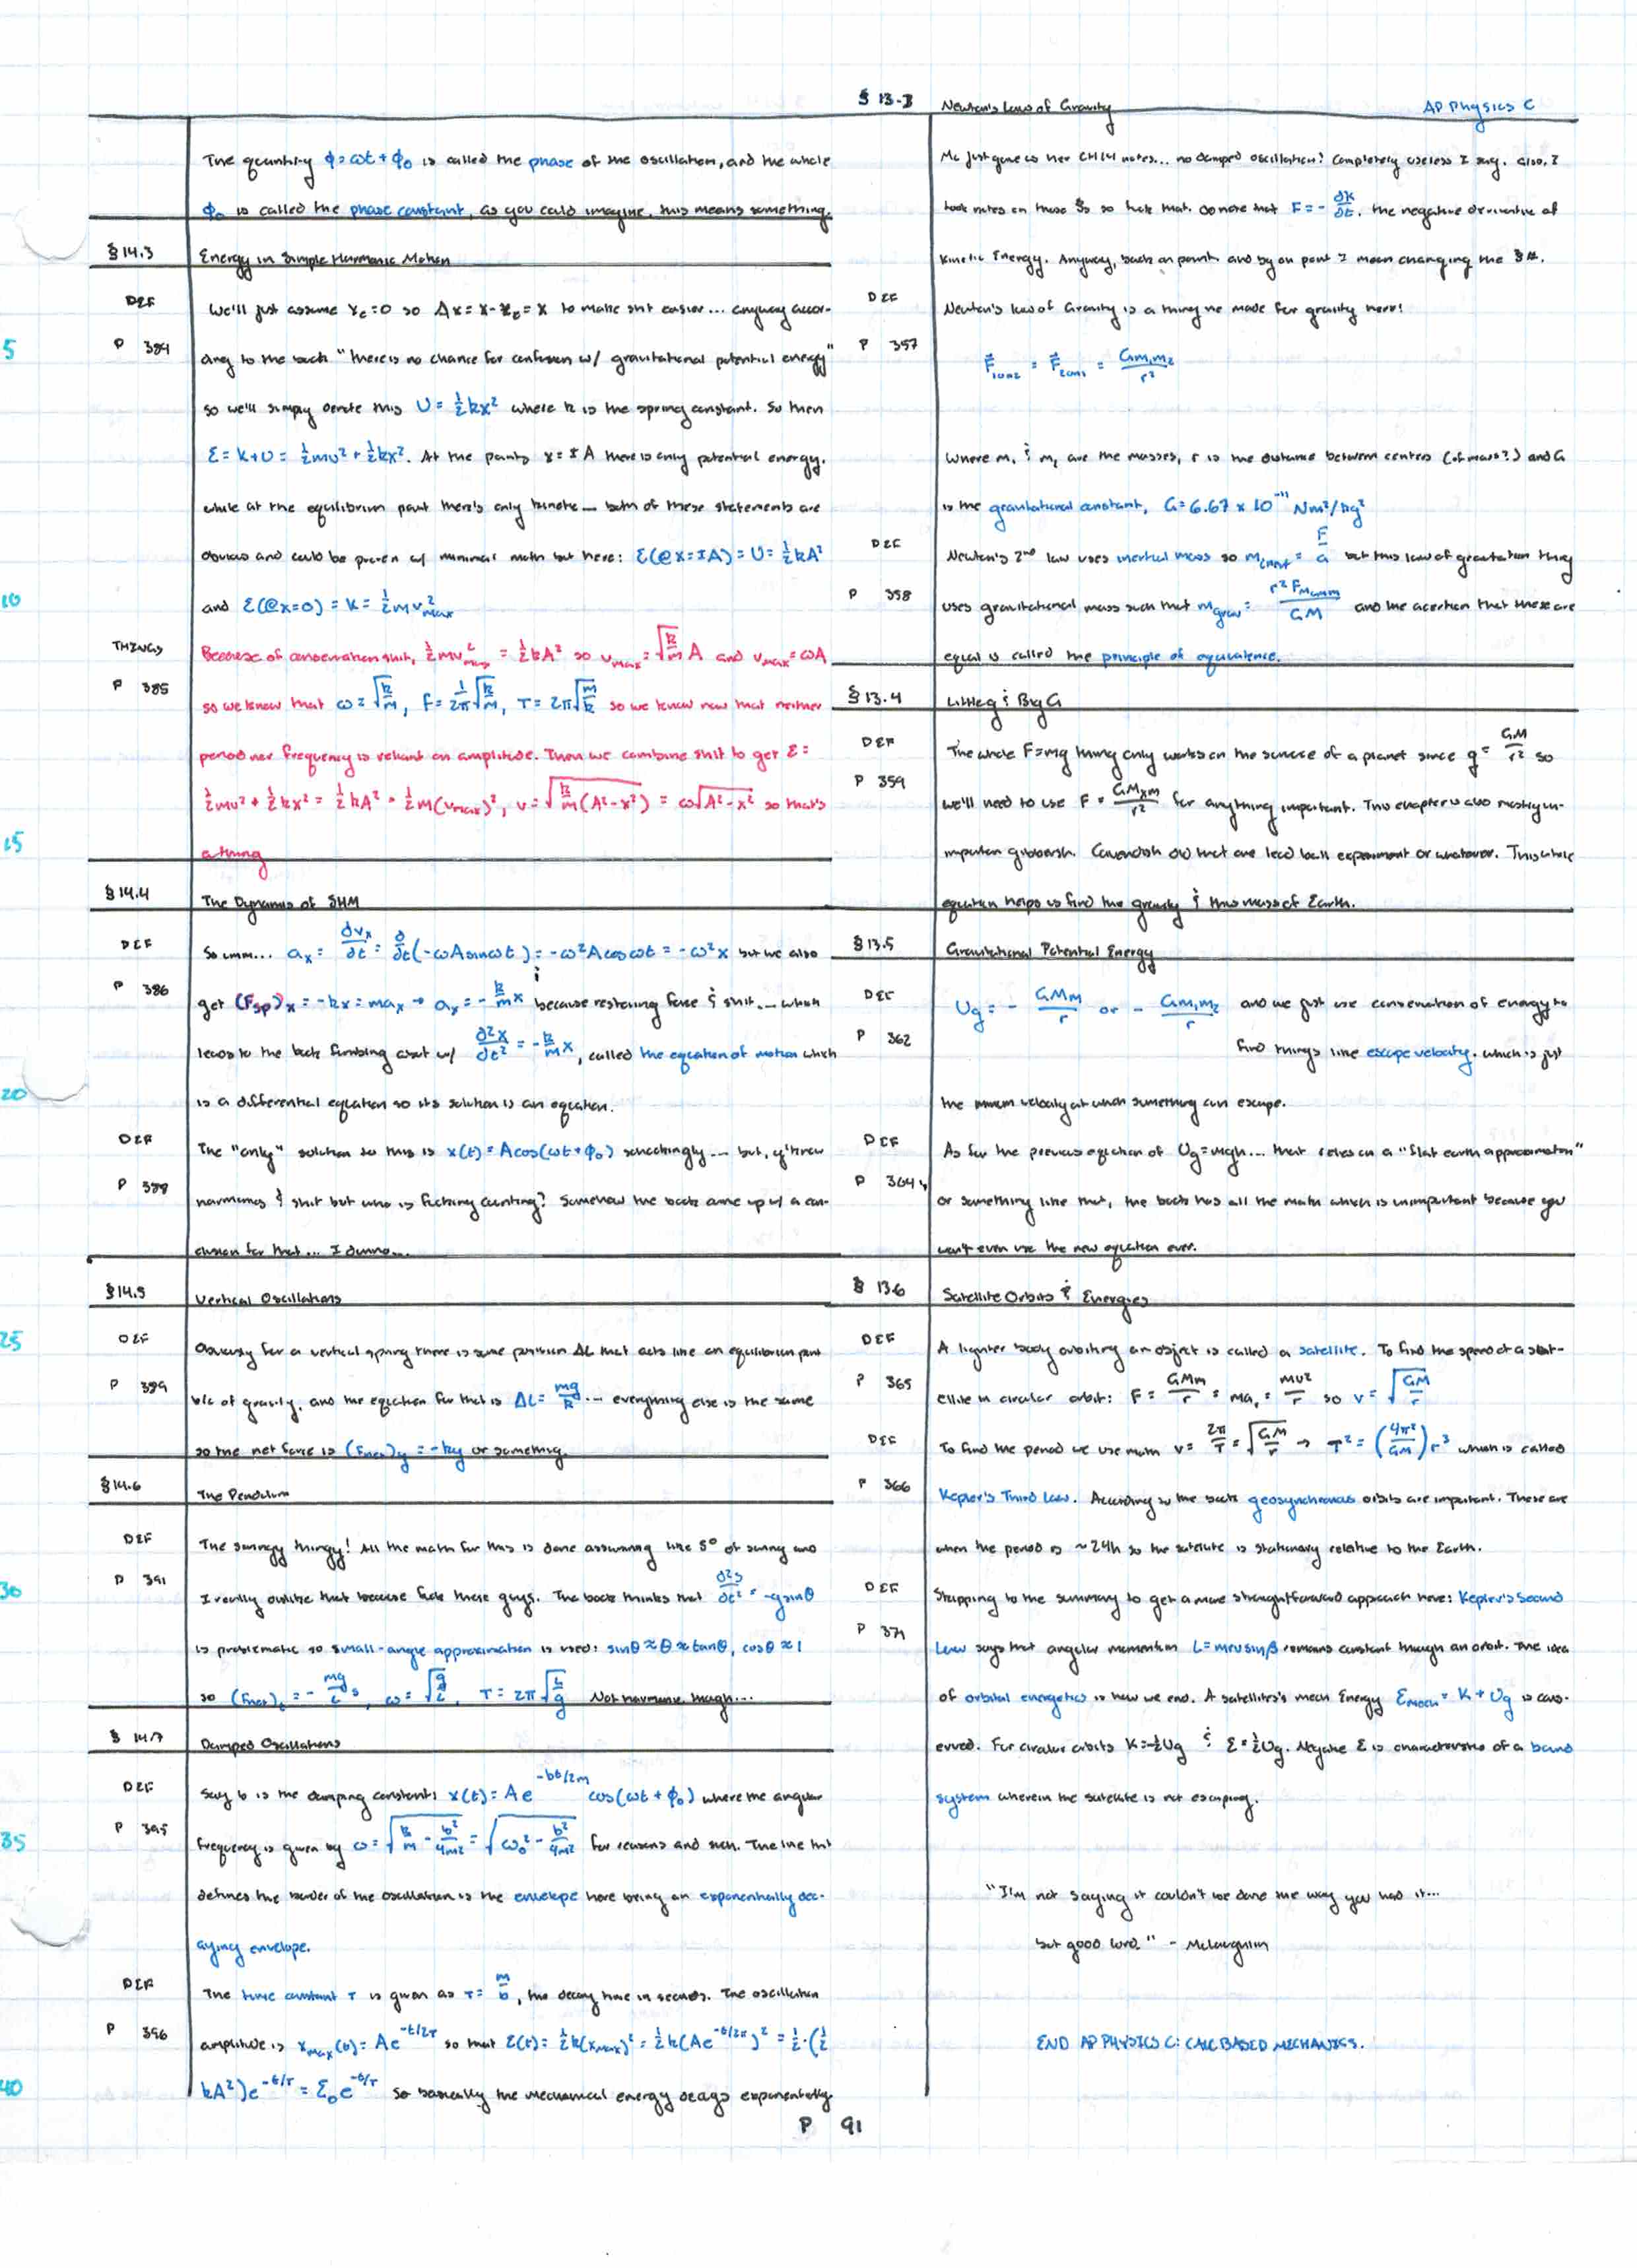 § 13-3 Newton's Law of Gravity AP Physics C
The quantity ϕ = ωt + ϕ₀ is called the phase of the oscillation, and the whole
ϕ₀ is called the phase constant, as you could imagine, this means something.
§ 14.3 Energy in Simple Harmonic Motion
DEF We'll just assume xₑ=0 so Δx = x-xₑ = x to make shit easier... anyway accor-
5 P 384 ding to the book "there is no chance for confusion w/ gravitational potential energy"
so we'll simply denote this U = ½kx² where k is the spring constant. So then
Ɛ = K+U = ½mv² + ½kx². At the points x = ±A there is only potential energy.
while at the equilibrium point there's only kinetic — both of these statements are
obvious and could be proven w/ minimal math but here: Ɛ(@x=±A) = U = ½kA²
10 and Ɛ(@x=0) = K = ½mv²max
THINGS Because of conservation shit, ½mv²max = ½kA² so vmax = √(k/m) A and vmax = ωA
P 385 so we know that ω = √(k/m), f = 1/2π √(k/m), T = 2π√(m/k) so we know now that neither
period nor frequency is reliant on amplitude. Then we combine shit to get Ɛ =
½mv² + ½kx² = ½kA² = ½m(vmax)², v = √(k/m (A²-x²)) = ω√(A²-x²) so that's
15 a thing
§ 14.4 The Dynamics of SHM
DEF So umm... aₓ = dvₓ/dt = d/dt(-ωAsinωt) = -ω²Acosωt = -ω²x but we also
P 386 get (Fsp)ₓ = -kx = maₓ → aₓ = -k/m x because restoring force & shit... which
leads to the book fumbling about w/ d²x/dt² = -k/m x, called the equation of motion which
20 is a differential equation so its solution is an equation.
DEF The "only" solution to this is x(t) = Acos(ωt+ϕ₀) ... but, y'know
P 388 harmonics & shit but who is fucking counting? Somehow the book came up w/ a con-
clusion for that... I dunno...
§ 14.5 Vertical Oscillations
25 DEF Obviously for a vertical spring there is some position ΔL that acts like an equilibrium point
P 389 b/c of gravity, and the equation for that is ΔL = mg/k ... everything else is the same
so the net force is (Fnet)y = -ky or something.
§ 14.6 The Pendulum
DEF The swingy thingy! All the math for this is done assuming like 5° of swing and
30 P 391 I really dislike that because fuck these guys. The book thinks that d²s/dt² = -gsinθ
is problematic so small-angle approximation is used: sinθ ≈ θ ≈ tanθ, cosθ ≈ 1
so (Fnet)t = -mg/L s, ω = √(g/L), T = 2π√(L/g) Not harmonic though...
§ 14.7 Damped Oscillations
DEF Say b is the damping constant: x(t) = Ae^(-bt/2m) cos(ωt + ϕ₀) where the angular
35 P 395 frequency is given by ω = √(k/m - b²/4m²) = √(ω₀² - b²/4m²) for reasons and such. The line that
defines the border of the oscillation is the envelope here being an exponentially dec-
aying envelope.
DEF The time constant τ is given as τ = m/b, the decay time in seconds. The oscillation
P 396 amplitude is xmax(t) = Ae^(-t/2τ) so that Ɛ(t) = ½k(xmax)² = ½k(Ae^(-t/2τ))² = ½·(½
40 kA²)e^(-t/τ) = Ɛ₀e^(-t/τ) so basically the mechanical energy decays exponentially.
Mc just gave us her CH14 notes... no damped oscillation? Completely useless I say. Also, I
took notes on those §s so fuck that. Do note that F = -dK/dt, the negative derivative of
Kinetic Energy. Anyway, back on point and by on point I mean changing the §#.
DEF Newton's law of Gravity is a thing he made for gravity here!
P 357 F⃗1on2 = F⃗2on1 = Gm₁m₂/r²
where m₁ & m₂ are the masses, r is the distance between centers (of mass?) and G
is the gravitational constant, G = 6.67 x 10⁻¹¹ Nm²/kg²
DEF Newton's 2nd law uses inertial mass so minert = F/a but this law of gravitation thing
P 358 uses gravitational mass such that mgrav = r²FMonm/GM and the assertion that these are
equal is called the principle of equivalence.
§ 13.4 Little g & Big G
DEF The whole F=mg thing only works on the surface of a planet since g = GM/r² so
P 359 we'll need to use F = GMxm/r² for anything important. This chapter is also mostly un-
important gibberish. Cavendish did that one lead ball experiment or whatever. This whole
equation helps us find the gravity & thus mass of Earth.
§ 13.5 Gravitational Potential Energy
DEF Ug = - GMm/r or - Gm₁m₂/r and we just use conservation of energy to
P 362 find things like escape velocity. which is just
the minimum velocity at which something can escape.
DEF As for the previous equation of Ug=mgh... that relies on a "flat earth approximation"
P 364 or something like that, the book has all the math which is unimportant because you
won't even use the new equation ever.
§ 13.6 Satellite Orbits & Energies
DEF A lighter body orbiting an object is called a satellite. To find the speed of a satel-
P 365 ellite in circular orbit: F = GMm/r = mar = mv²/r so v = √(GM/r)
DEF To find the period we use math v = 2π/T = √(GM/r) → T² = (4π²/GM)r³ which is called
P 366 Kepler's Third Law. According to the book geosynchronous orbits are important. These are
when the period is ~24h so the satellite is stationary relative to the Earth.
DEF Skipping to the summary to get a more straightforward approach here: Kepler's Second
P 371 Law says that angular momentum L = mrvsinβ remains constant through an orbit. The idea
of orbital energetics is how we end. A satellites's mech Energy Ɛmech = K + Ug is cons-
erved. For circular orbits K = -½Ug & Ɛ = ½Ug. Negative Ɛ is characteristic of a bound
system wherein the satellite is not escaping.
"I'm not saying it couldn't be done the way you had it...
but good lord." - McLaughlin
END AP PHYSICS C: CALC BASED MECHANICS.
P 91